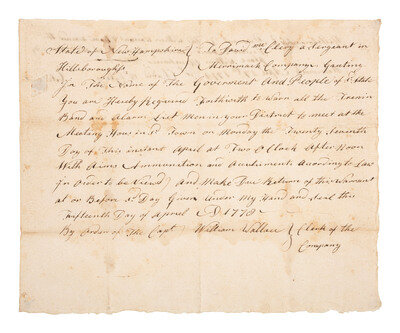 State of New Hampshire } To David mc Clery a Sergeant in
Hillsborough ss } Merrimack Company Greeting
In The Name of The Goverment And People of sd State
You are Hereby Required Forthwith to warn all the Train
Band and Alarm List Men in your District to meet at the
Meeting House in sd Town on Monday the Twenty Seventh
Day of this instant April at Two O Clock After Noon
With Arms Ammunition and Acutriments According to Law
in Order to be Viewd and Make Due Return of this Warrant
at or Before sd Day Given Under My Hand and Seal this
fifteenth Day of April AD 1778
By Order of The Capt William Wallace } Clerk of the
Company